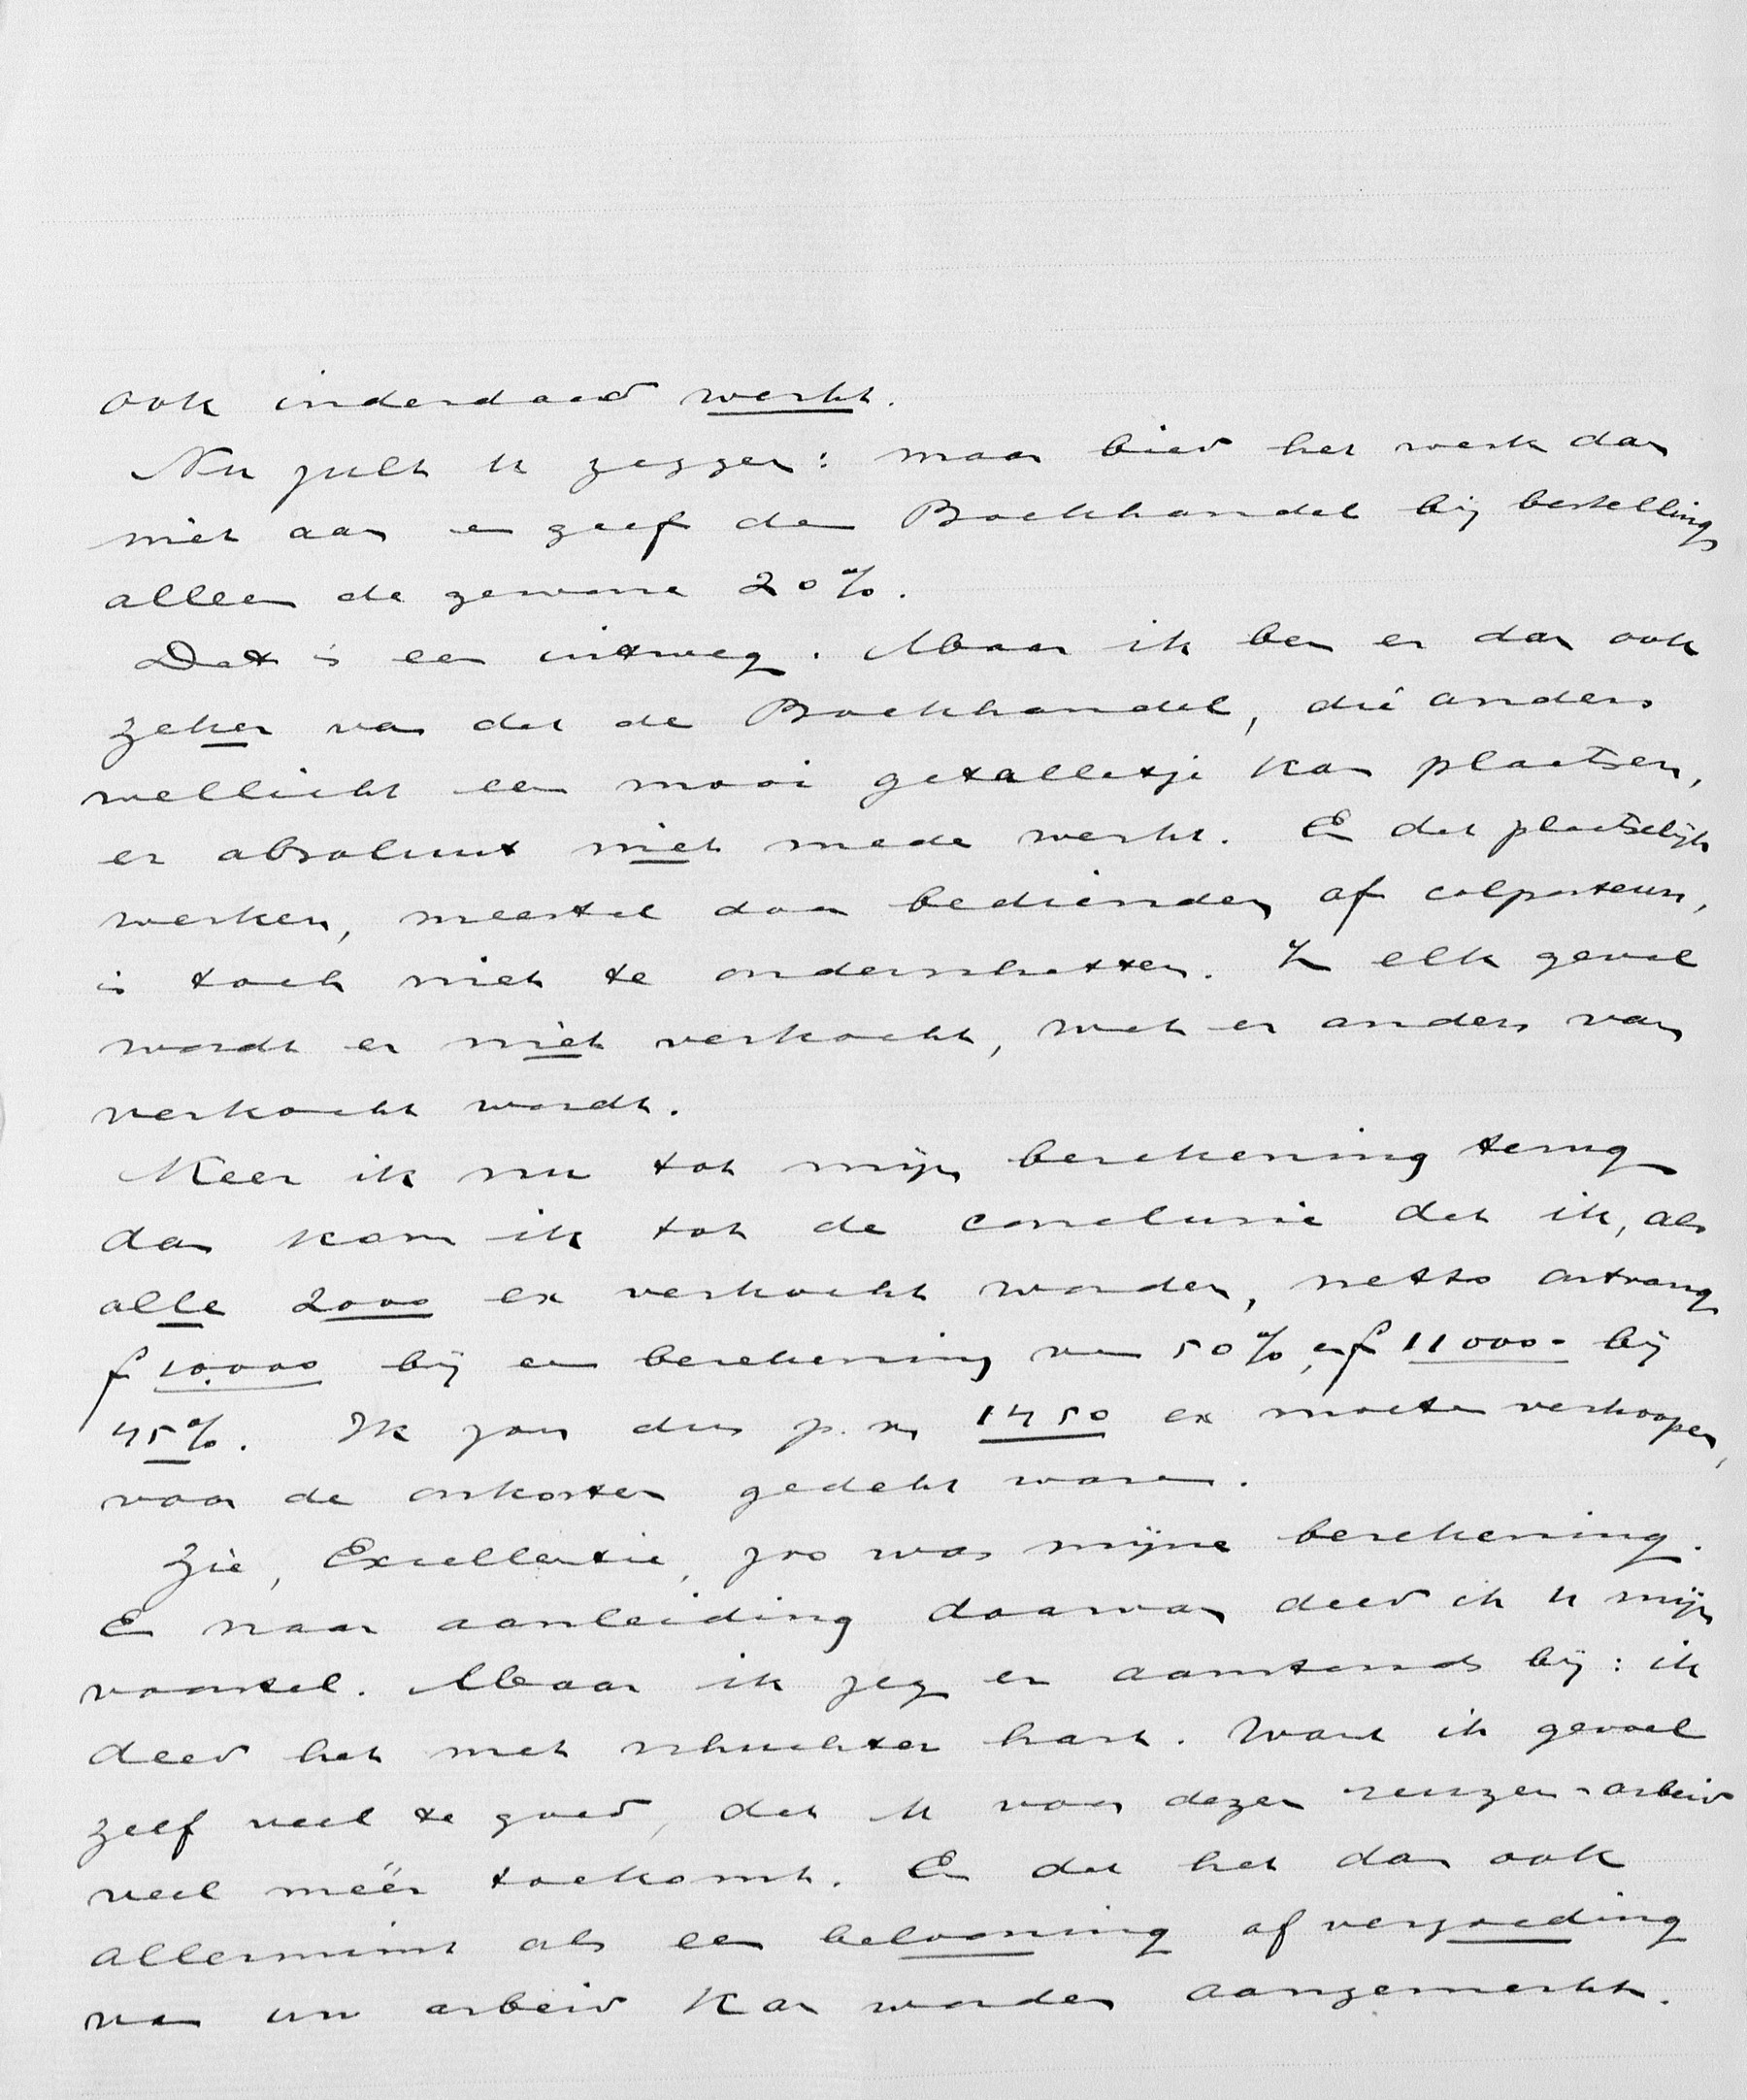 ook inderdaad werkt.
Nu zult u zeggen: maar bied het werk dan
niet aan en geef den Boekhandel bij bestelling
alleen de gewone 20%.
Dat is een uitweg. Maar ik ben er dan ook
zeker van dat de Boekhandel, die anders
wellicht een mooi getalletje kan plaatsen,
er absoluut niet mede werkt. En dat plaatselijk
werken, meestal door bedienden of colporteurs,
is toch niet te onderschatten. In elk geval
wordt er niet verkocht, wat er anders van
verkocht wordt.
Keer ik nu tot mijn berekening terug
dan kom ik tot de conclusie dat ik, als
alle 2000 ex verkocht worden, netto ontvang
f 10.000 bij een berekening van 50%, en f 11000- bij
45%. Ik zou dus p.m. 1450 ex moeten verkoopen,
voor de onkosten gedekt waren.
Zie, Excellentie, zoo was mijne berekening.
En naar aanleiding daarvan deed ik u mijn
voorstel. Maar ik zeg er aanstonds bij: ik
deed het met schuchter hart. Want ik gevoel
zelf veel te goed, dat u voor dezen reuzen-arbeid
veel méér toekomt. En dat het dan ook
allerminst als een belooning of vergoeding
van uw arbeid kan worden aangemerkt.